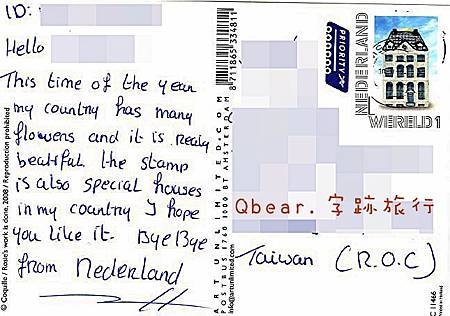 ID:
Hello
This time of the year
my country has many
flowers and it is realy
beatifal the stamp
is also special houses
in my country I hope
you like it. Bye Bye
from Nederland
© Coquille / Rosie's work is done, 2008 / Reproduction prohibited
8 711865 334811
ARTUNLIMITED.COM
POSTBUS 1760 1000 BT AMSTERDAM
info@artunlimited.com
PRIORITY
NEDERLAND
WERELD 1
Qbear. 字跡旅行
Taiwan (R.O.C)
C 11466